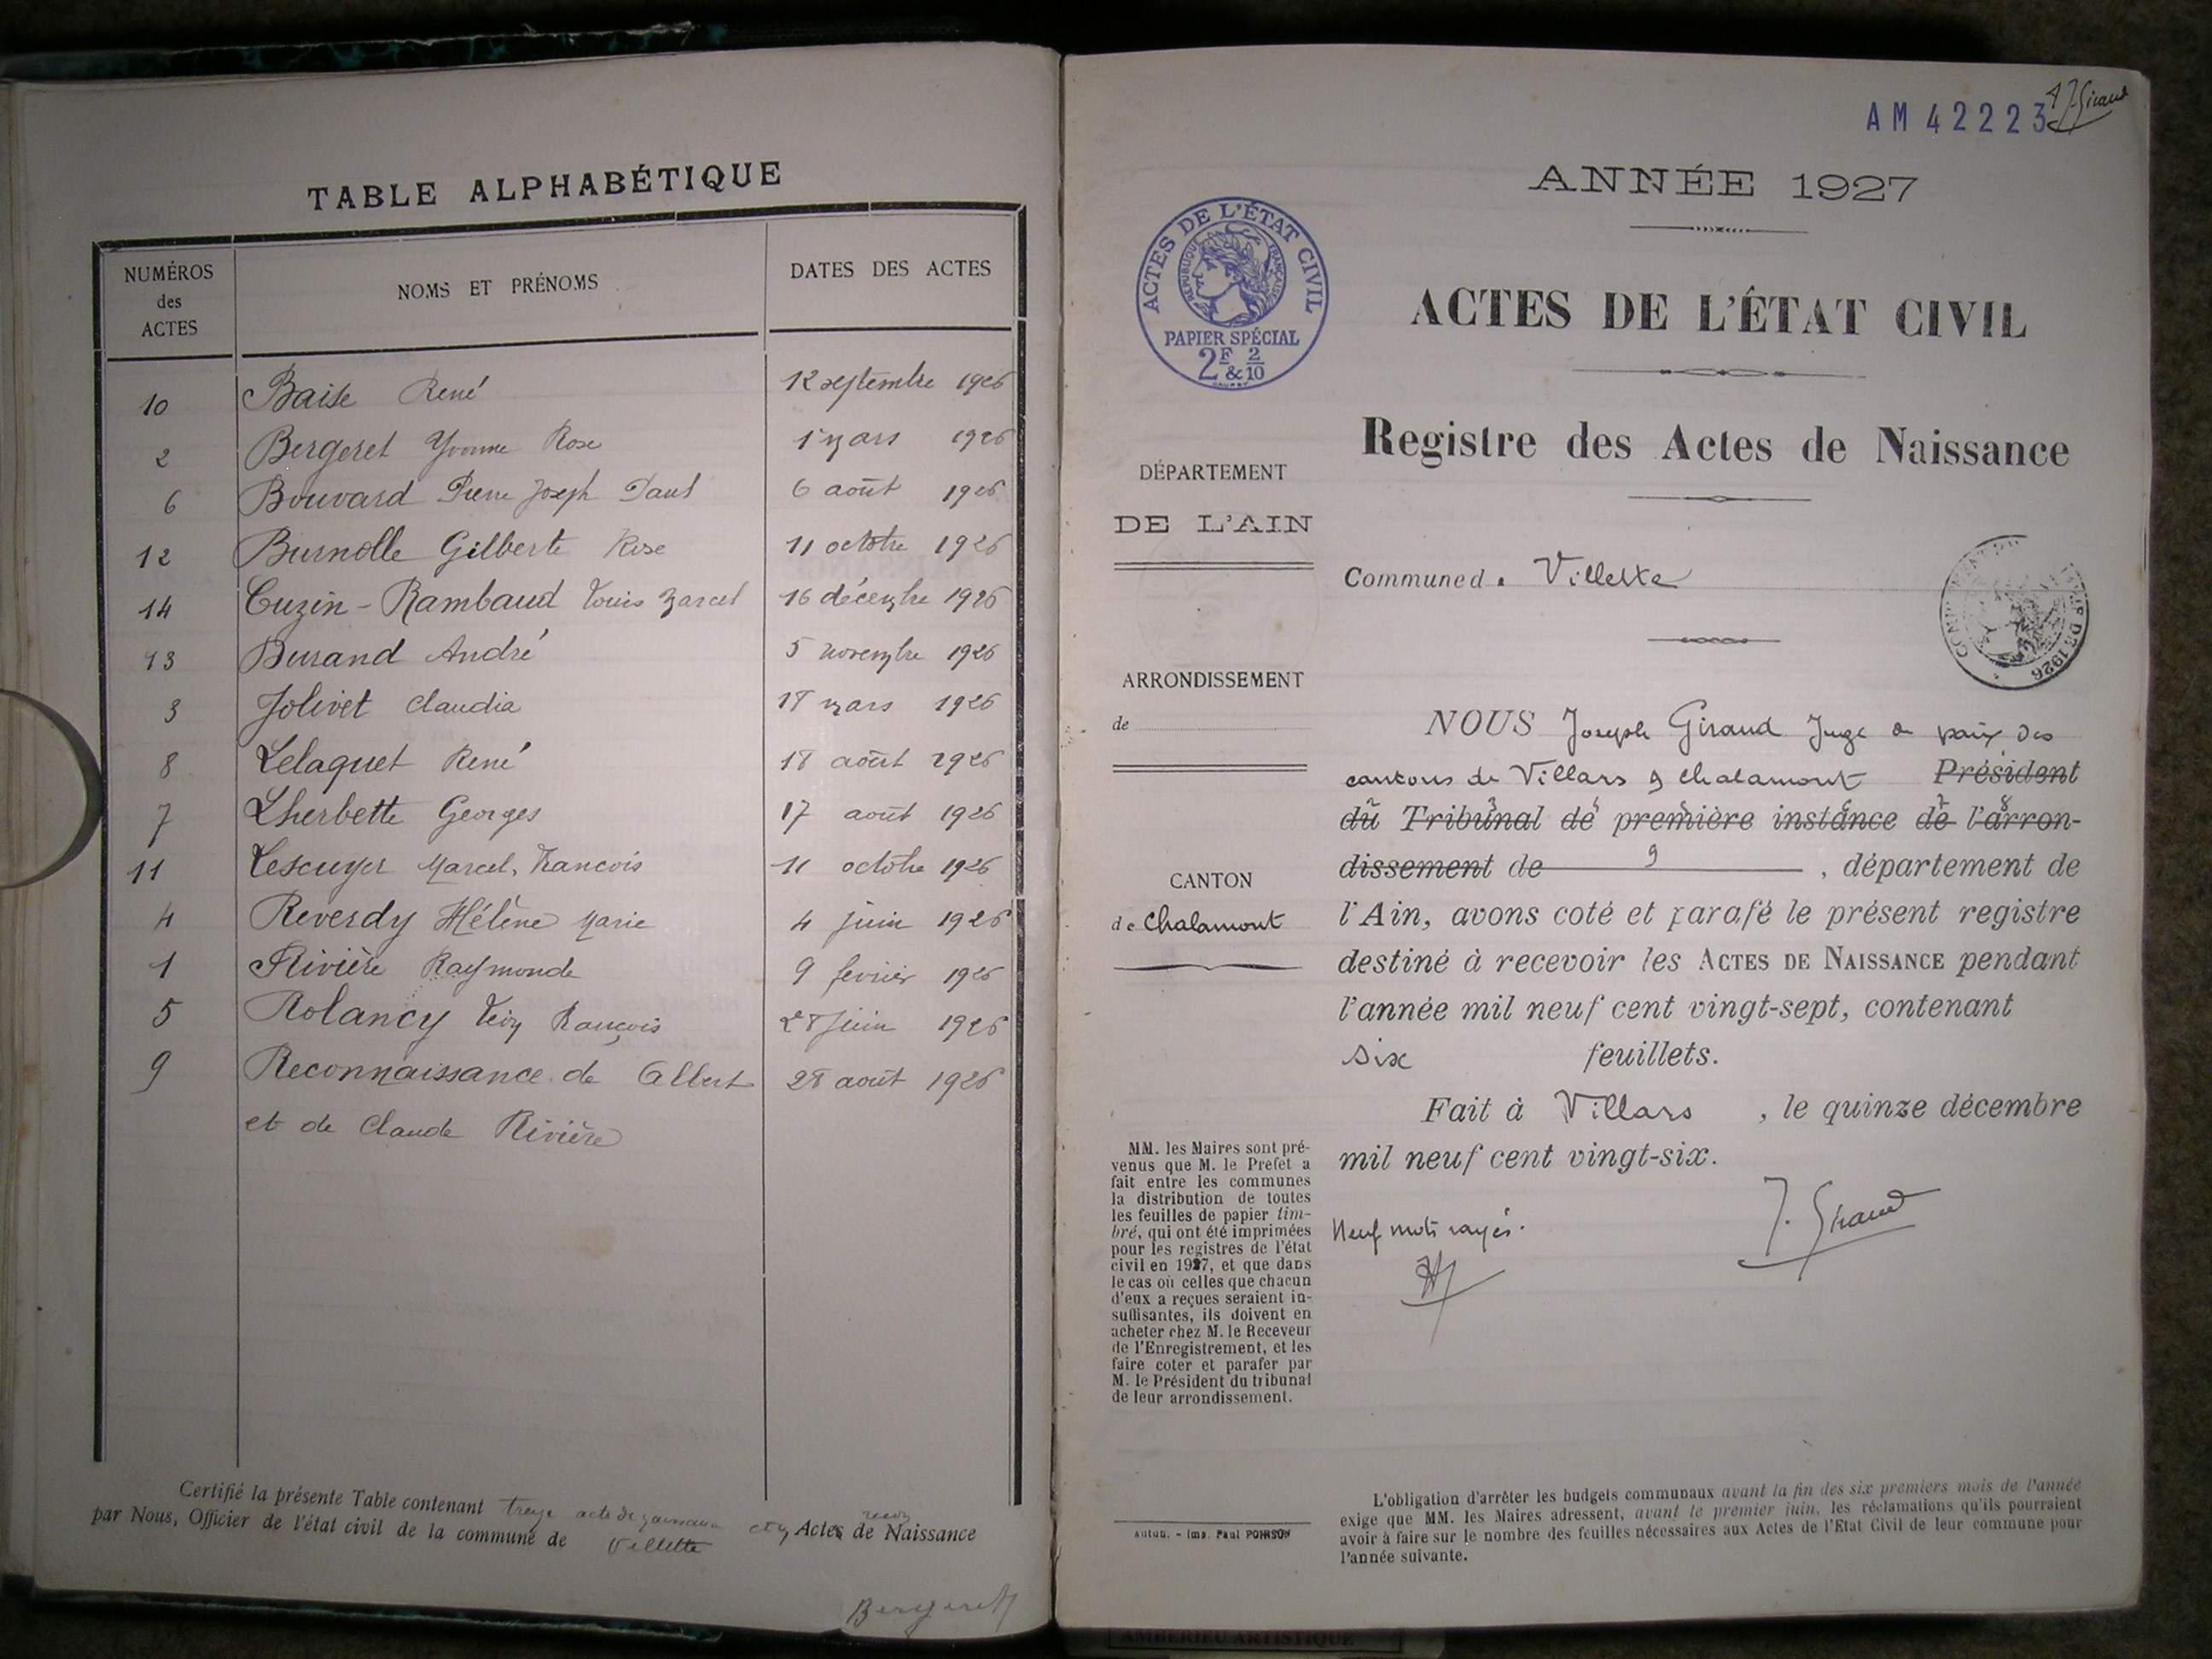 TABLE ALPHABÉTIQUE
NUMÉROS
des
ACTES
NOMS ET PRÉNOMS
DATES DES ACTES
10 Baise René 12 septembre 1926
2 Bergeret Yvonne Rose 1 mars 1926
6 Bouvard Pierre Joseph Paul 6 août 1926
12 Burnolle Gilberte Rose 11 octobre 1926
14 Cuzin-Rambaud Louis Marcel 16 décembre 1926
13 Durand André 5 novembre 1926
3 Jolivet Claudia 18 mars 1926
8 Lelaquet René 18 août 1926
7 Lherbette Georges 17 août 1926
11 Lescuyer Marcel, Francois 11 octobre 1926
4 Reverdy Hélène Marie 4 juin 1926
1 Rivière Raymonde 9 fevrier 1926
5 Rolancy François 28 juin 1926
9 Reconnaissance de Albert 28 août 1926
et de Claude Rivière
Certifié la présente Table contenant treize acte de naissance
par Nous, Officier de l'état civil de la commune de Villette Actes de Naissance
Bergeret
AM 42223
J. Giraud
ANNÉE 1927
ACTES DE L'ÉTAT CIVIL
RÉPUBLIQUE FRANÇAISE
PAPIER SPÉCIAL
2F & 2/10
ACTES DE L'ÉTAT CIVIL
Registre des Actes de Naissance
DÉPARTEMENT
DE L'AIN
Commune d. Villette
DE 1926
ARRONDISSEMENT
de
CANTON
de Chalamont
NOUS Joseph Giraud Juge de paix des
cantons de Villars & Chalamont Président
du Tribunal de première instance de l'arron-
dissement de 9 , département de
l'Ain, avons coté et parafé le présent registre
destiné à recevoir les ACTES DE NAISSANCE pendant
l'année mil neuf cent vingt-sept, contenant
six feuillets.
Fait à Villars , le quinze décembre
mil neuf cent vingt-six.
Neuf mots rayés.
J. Giraud
MM. les Maires sont pré-
venus que M. le Prefet a
fait entre les communes
la distribution de toutes
les feuilles de papier tim-
bré, qui ont été imprimées
pour les registres de l'état
civil en 1927, et que dans
le cas où celles que chacun
d'eux a reçues seraient in-
suffisantes, ils doivent en
acheter chez M. le Receveur
de l'Enregistrement, et les
faire coter et parafer par
M. le Président du tribunal
de leur arrondissement.
Autun. - Imp. Paul POIRSON
L'obligation d'arrêter les budgets communaux avant la fin des six premiers mois de l'année
exige que MM. les Maires adressent, avant le premier juin, les réclamations qu'ils pourraient
avoir à faire sur le nombre des feuilles nécessaires aux Actes de l'Etat Civil de leur commune pour
l'année suivante.
AMBERIEU ARTISTIQUE